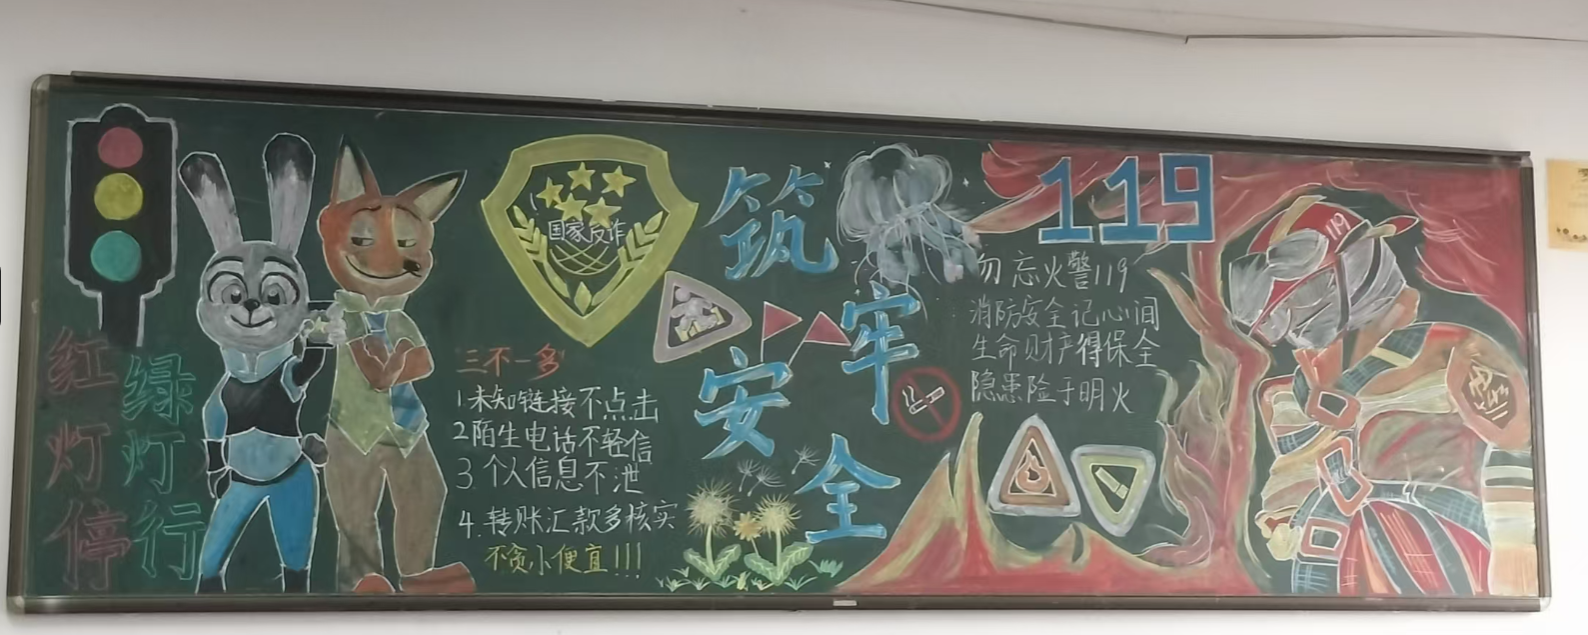 红灯停
绿灯行
国家反诈
三不一多
1.未知链接不点击
2陌生电话不轻信
3.个人信息不泄
4.转账汇款多核实
不贪小便宜!!!
筑牢
安全
119
勿忘火警119
消防安全记心间
生命财产得保全
隐患险于明火
119